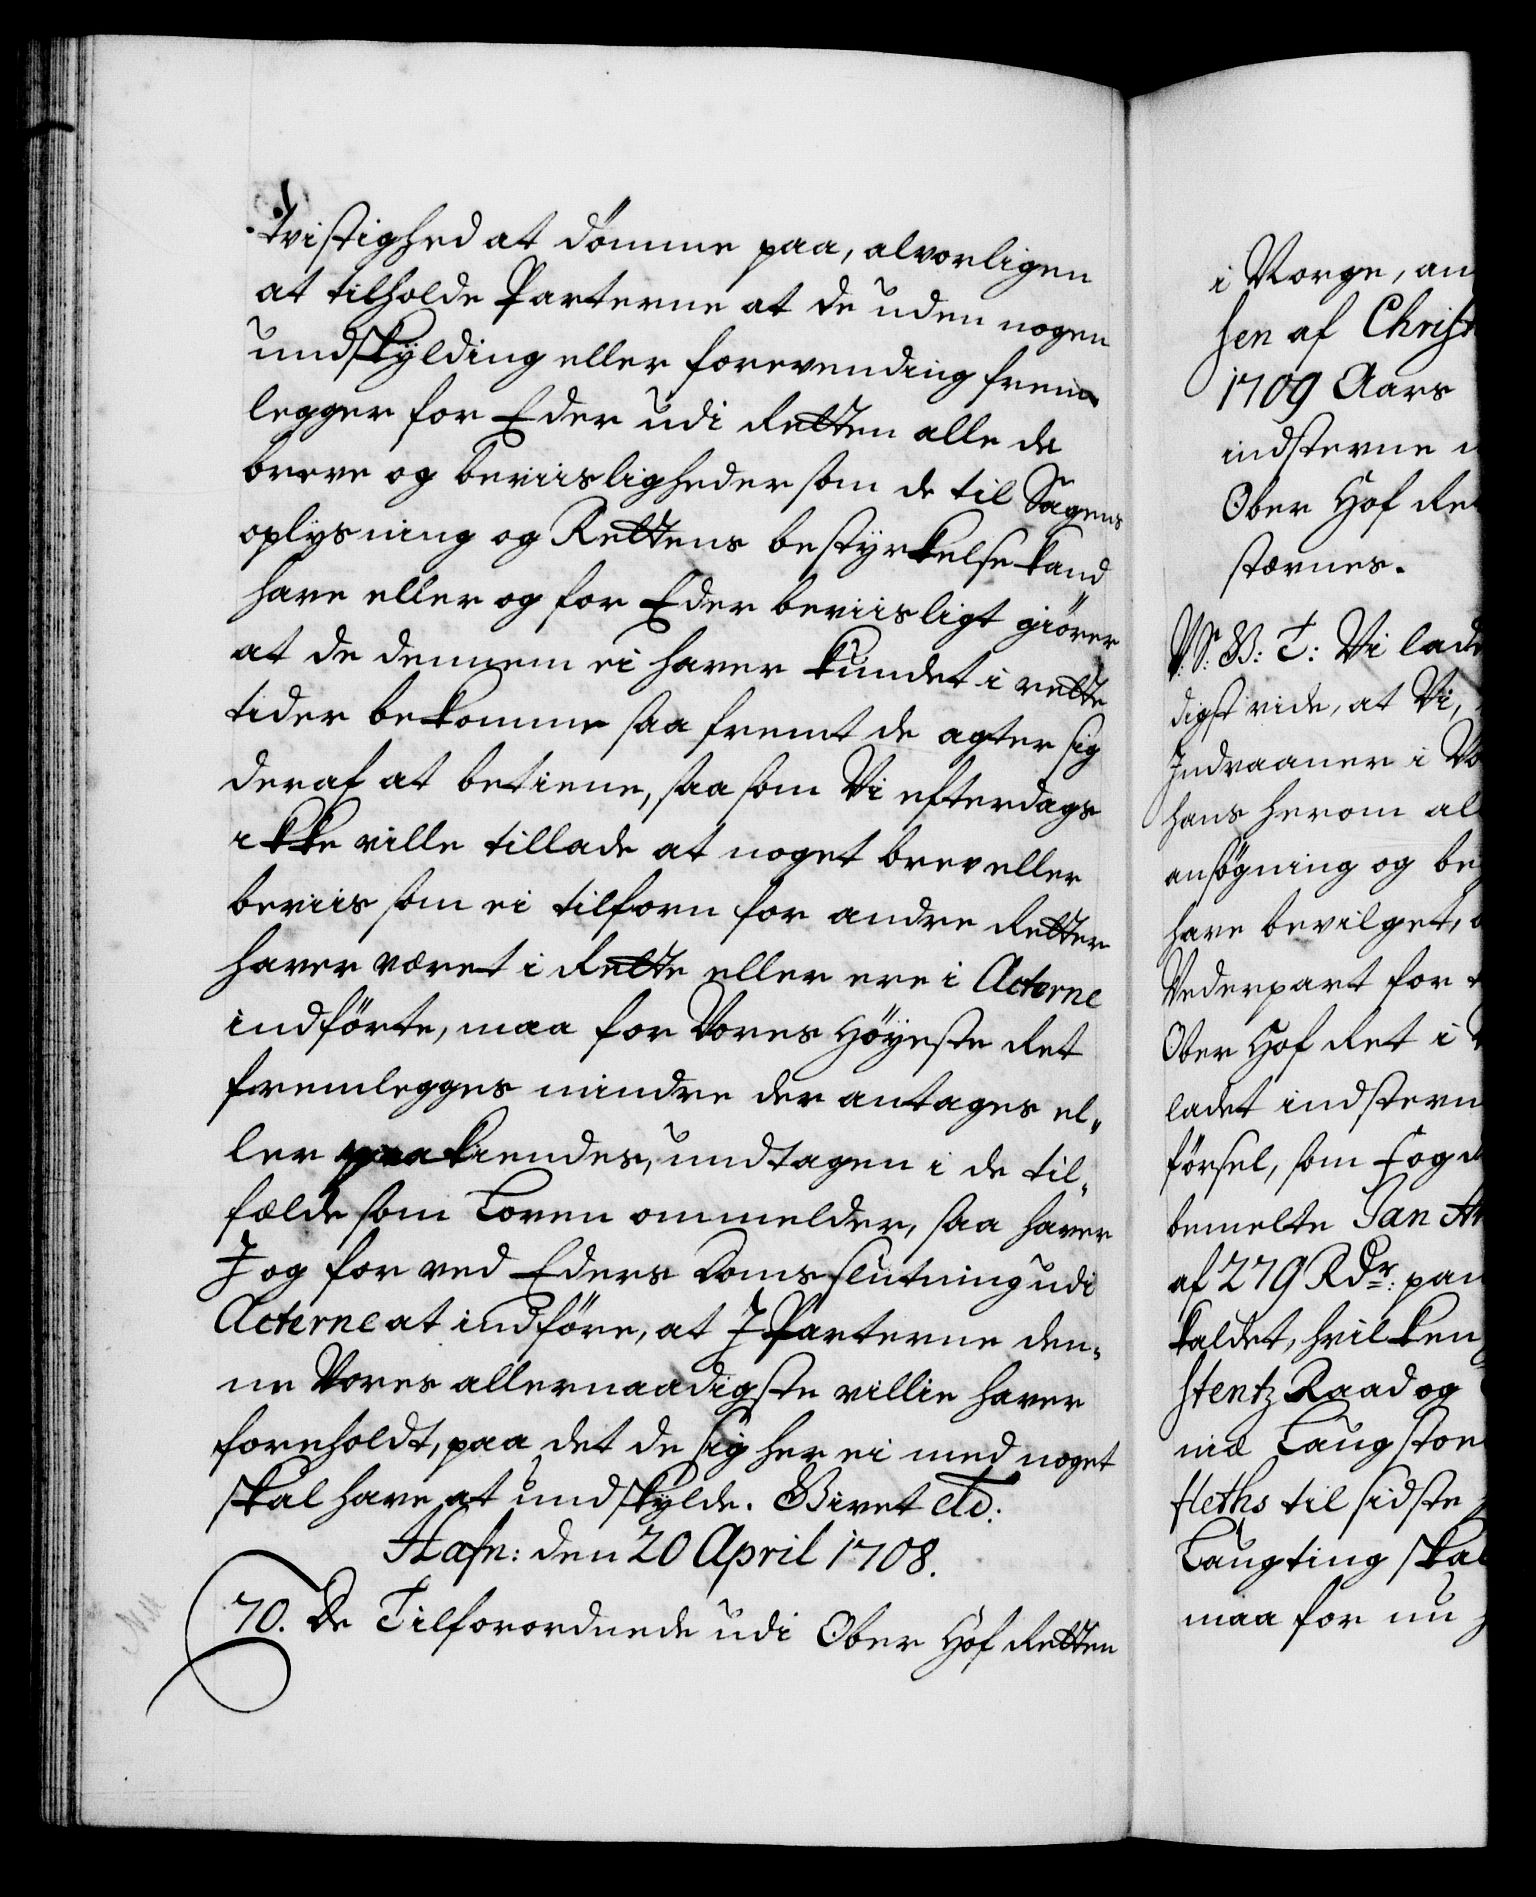 tvistighed at dømme paa, alvorligen
at tilholde Parterne at de uden nogen
undskylding eller forevending frem
legger for Eder udi Retten alle de
breve og beviisligheder som de til Sagens
oplysning og Rettens bestyrkelse kand
have eller og for Eder beviisligt giører
at de dennem ei haver kundet i rette
tider bekomme saa fremt de agter sig
deraf at betiene, saa som Vi efterdags
ikke ville tillade at noget brev eller
beviis som ei tilforn for andre Retter
haver været i Rette eller ere i Acterne
indførte, maa for Vores Høyeste Ret
fremlegges mindre der antages el„
ler paakiendes, undtagen i de til„
fælde som Loven ommelder, saa haver
I og for ved Eders Doms slutning udi
Acterne at indføre, at I Parterne den„
ne Vores allernaadigste villie haver
foreholdt, paa det de sig her ei med noget
skal have at undskylde. Givet etc:
Hafn: den 20 April 1708.
70. De Tilforordnede udi Ober Hof Retten
i Norge, an
sen af Christ
1709 Aars
indsterne
Ober Hof Ret
stævnes.
V: S: G: T: Vi lade
digst vide, at Vi,
Indvaaner i
hans herom al
ansøgning og be
have bevilget,
Vederpart for
Ober Hof Ret i
ladet indstevn
førsel, som
bemelte Jan
af 279 Rdr: paa
kaldet, hvilken
stentz Raad og
niæ Laugstoe
fleths til sidste
Laugting skal
maa for nu